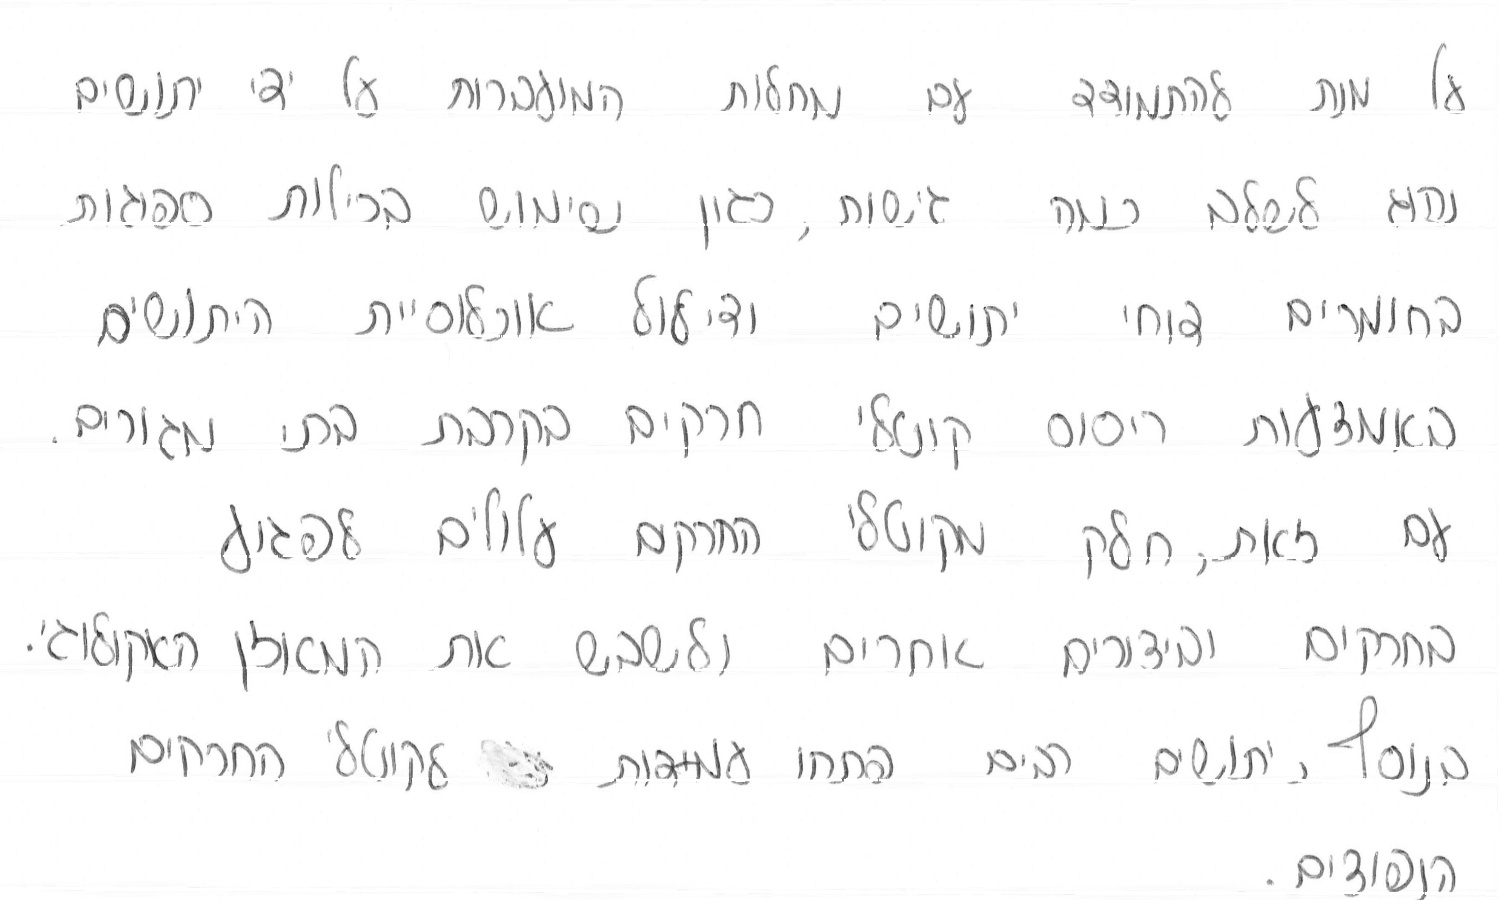 על מנת להתמודד עם מחלות המועברות על ידי יתושים
נהוג לשלב כמה גישות, כגון שימוש בכילות ספוגות
בחומרים דוחי יתושים ודילול אוכלוסיית היתושים
באמצעות ריסוס קוטלי חרקים בקרבת בתי מגורים.
עם זאת, חלק מקוטלי החרקים עלולים לפגוע
בחרקים וביצורים אחרים ולשבש את המאוזן האקולוגי.
בנוסף, יתושים רבים פתחו עמידות לקוטלי החרקים
הנפוצים.